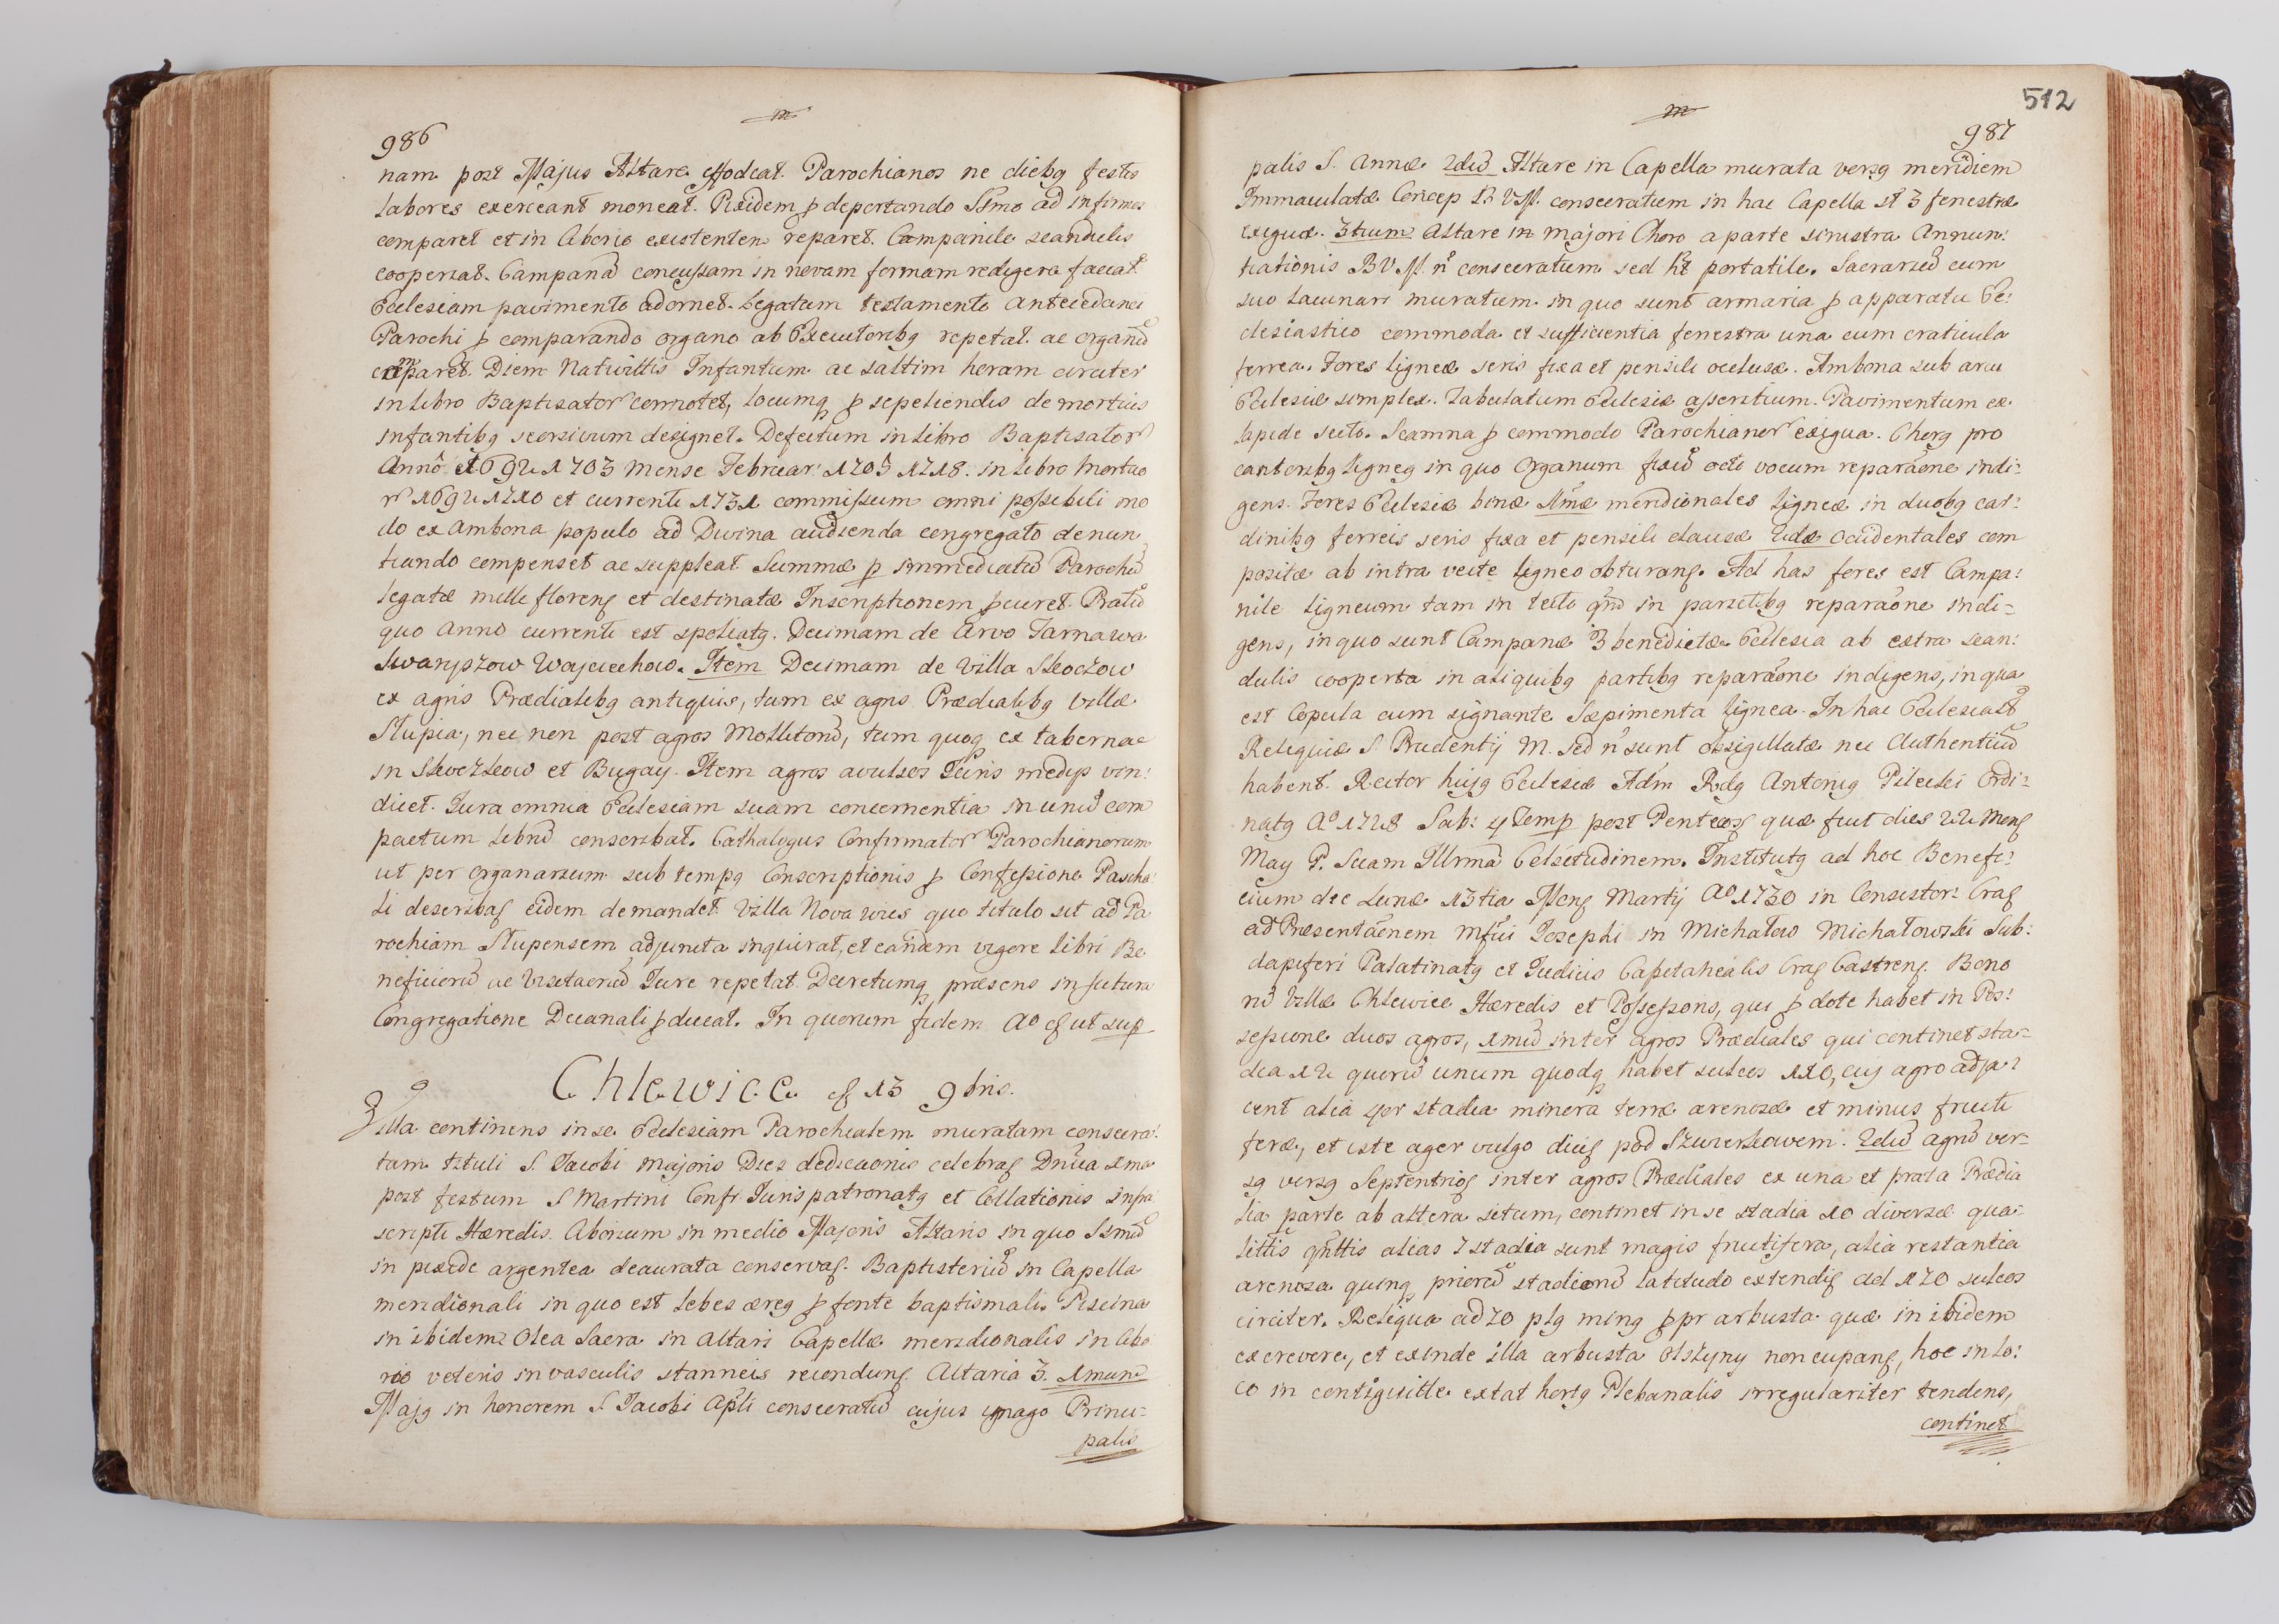 986
nam post Majus Altare effodeat. Parochianos ne diebg festis
labores exerceant moneat. Pixidem p deportando Ssmo ad infirmos
comparet et in Ciborio existentem reparet. Campanile scandulis
cooperiat. Campanā concussam in novam formam redigere faciat
Ecclesiam pavimento adornet. Legatum testamento Antecedanei
Parochi p comparando organo ab Executoribg repetat. ac organū
comparet. Diem Nativittis Infantum ac saltim horam circiter
in libro Baptisator connotet, locumq p sepeliendis de mortuis
infantibg seorsivum designet. Defectum in libro Baptisator
Annō 1692 1703 mense Februar: 1705 1718. in libro Mortuo
r 1692 1710 et currenti 1731 commissum omni possibili mo
do ex ambona populo ad Divina audienda congregato denun
tiando compenset ac suppleat. Summæ p immediatū Parochū
legatæ mille floreng et destinatæ Inscriptionem pcuret. Pratū
quo anno currenti est spoliatg. Decimam de Arvo Tarnawa
Swaryszow Wojciechow. Item Decimam de Villa Skoczow
ex agris Prædialibg antiquis, tum ex agris Prædialibg Villæ
Słupia, nec non post agros Molliton, tum quoq ex tabernae
in Skvezkow et Bugay. Item agros avulsos Juris medys vin:
dicet. Jura omnia Ecclesiam suam concernentia in unū com
pactum librū conscribat. Cathalogus Confirmator Parochianorum
ut per organarium sub tempg Conscriptionis p Confessione Pascha:
li describaς eidem demandet. Villa Nova wies quo titulo sit ad Pa
rochiam Słupensem adjuncta inquirat, et eandem vigore libri Be
neficiorū ac Visitaorū Jure repetat. Decretumq præsens in futura
Congregatione Decanali pducat. In quorum fidem Ao ς ut sup
Chlewice ς 13 9bris.
Villa continens in se Ecclesiam Parochialem muratam consecra:
tam tituli S. Jacobi Majoris Dies dedicaonis celebraς Dnica 1ma
post festum S Martini Conf: Juris patronatg et Collationis infra
scripti Hæredis. Ciborium in medio Majoris Altaris in quo Ssmū
in pixide argentea deaurata conservaς. Baptisteriū in Capella
meridionali in quo est lebes æreg p fonte baptismali. Piscina
in ibidem Olea Sacra in altari Capellæ meridionalis in Cibo
rio veteris in vasculis stanneis reconduntς. Altaria 3. 1mum
Majg in honorem S. Jacobi Apli consecratū cujus imago Princi=
palis
512
987
palis S. Annæ. 2dū Altare in Capella murata versg meridiem
Immaculatæ Concep B.V.M. consecratum in hac Capella st 3 fenestræ
exiguæ. 3tium Altare in majori Choro a parte sinistra Annun:
tiationis B V M. n consecratum sed ht portatile. Sacrariū cum
suo lacunari muratum. in quo sunt armaria p apparatu Ec:
clesiastico commoda et sufficientia fenestra una cum craticula
ferrea. Fores ligneæ seris fixa et pensili occlusæ. Ambona sub arcu
Ecclesiæ simplex. Tabulatum Ecclesiæ asseritium. Pavimentum ex
lapide secto. Scamna p commodo Parochianor exigua. Chorg pro
cantoribg ligneg in quo Organum fixū octo vocum reparaōne indi:
gens. Fores Ecclesiæ binæ 1mæ meridionales ligneæ in duobg car:
dinibg ferreis seris fixa et pensili clausæ 2dæ occidentales com
positæ ab intra vecte ligneo obturanς. Ad has fores est Campa:
nile ligneum tam in tecto qnd in parietibg reparaōne indi=
gens, in quo sunt Campanæ 3 benedictæ. Ecclesia ab extra scan:
dulis cooperta in aliquibg partibg reparaōne indigens, in qua
est Copula cum signante. Sæpimenta lignea. In hac Ecclesia st
Reliquiæ S Prudentij M. sed n sunt obsigillatæ nec Authenticū
habent. Rector hujg Ecclesiæ Adm Rdg Antonig Pilecki Ordi=
natg Ao 1728 Sab: 4 Temp post Pentecos quæ fuit dies 22 Mens
May P. Suam Illrmā Celsitudinem. Institutg ad hoc Benefi:
cium die Lunæ 13tia Mens Martij Ao 1730 in Consistor: Crac
ad Præsentāonem Mfici Josephi in Michałow Michałowski Sub:
dapiferi Palatinatg et Judicis Capitanealis Crac Castrens. Bono
rū Villæ Chlewice Hæredis et Possessoris, qui p dote habet in Pos:
sessione duos agros, 1mū inter agros Prædiales qui continet sta=
dia 12 quorū unum quodq habet sulcos 110, cuj agro adja:
cent alia 4or stadia minora terræ arenosæ et minus fructi
feræ, et iste ager vulgo diciς pod Szwierkowem. 2dū agrū ver=
sg versg Septentrioς inter agros Prædiales ex una et prata Prædia
lia parte ab altera situm, continet in se stadia 10 diversæ qua=
littis qnttis alias 7 stadia sunt magis fructifera, alia restantia
arenosa quinq priorū stadiorū latitudo extendiς ad 120 sulcos
circiter. Reliqua ad 70 plg ming ppr arbusta quæ in ibidem
excrevere, et exinde illa arbusta Olszyny noncupanς, hoc in lo:
co in contiguitte extat hortg Plebanalis irregulariter tendens,
continet